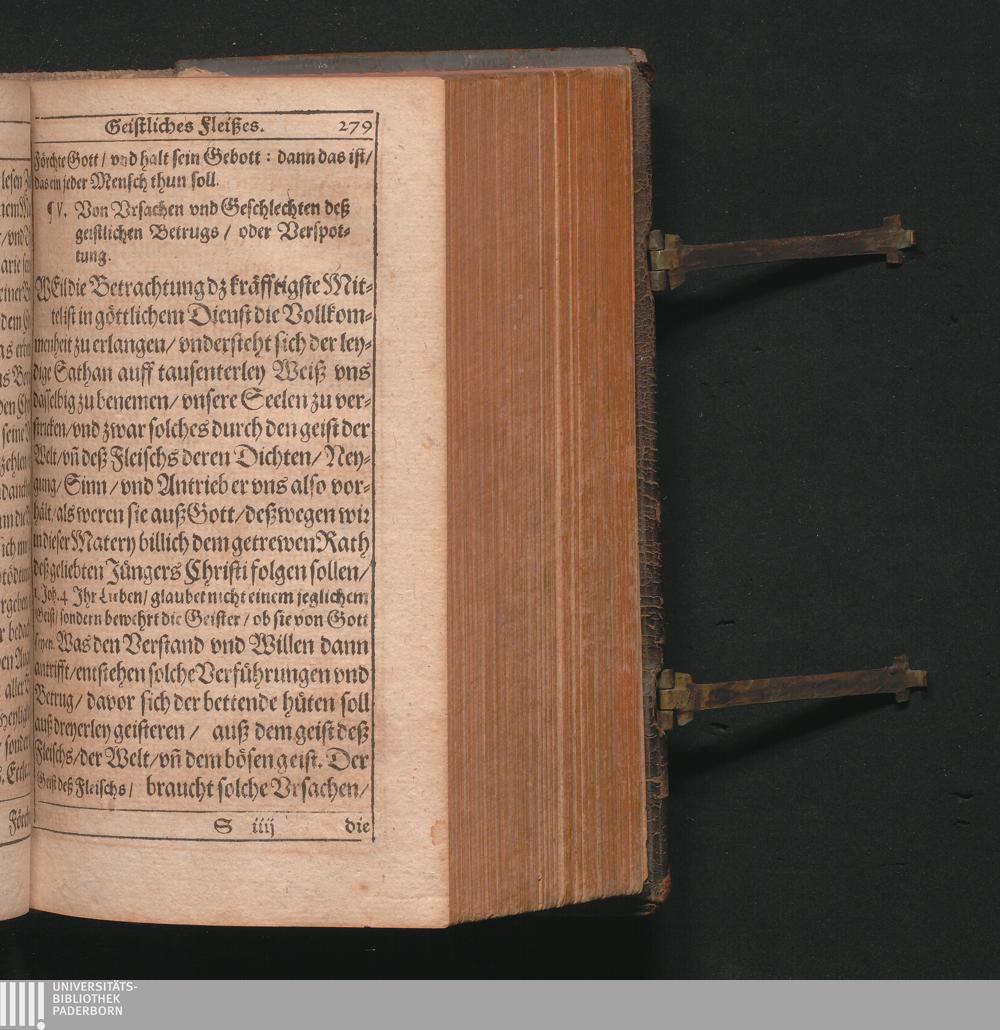 Geistliches Fleißes. 279
Förchte Gott / vnd halt sein Gebott : dann das ist /
das ein jeder Mensch thun soll.
¶ V. Von Vrsachen vnd Geschlechten deß
geistlichen Betrugs / oder Verspot-
tung.
WEil die Betrachtung dz kräfftigste Mit-
tel ist in göttlichem Dienst die Vollkom-
menheit zu erlangen / vndersteht sich der ley-
dige Sathan auff tausenterley Weiß vns
dasselbig zu benemen / vnsere Seelen zu ver-
stricken / vnd zwar solches durch den geist der
Welt / vñ deß Fleischs deren Dichten / Ney-
gung / Sinn / vnd Antrieb er vns also vor-
hält / als weren sie auß Gott / deßwegen wir
in dieser Matery billich dem getrewen Rath
deß geliebten Jüngers Christi folgen sollen /
1. Joh. 4 Ihr Lieben / glaubet nicht einem jeglichem
Geist / sondern bewehrt die Geister / ob sie von Gott
seyen. Was den Verstand vnd Willen dann
antrifft / entstehen solche Verführungen vnd
Betrug / davor sich der bettende hüten soll
auß dreyerley geisteren / auß dem geist deß
Fleischs / der Welt / vñ dem bösen geist. Der
Geist deß Fleischs / braucht solche Vrsachen /
S iiij die
UNIVERSITÄTS-
BIBLIOTHEK
PADERBORN